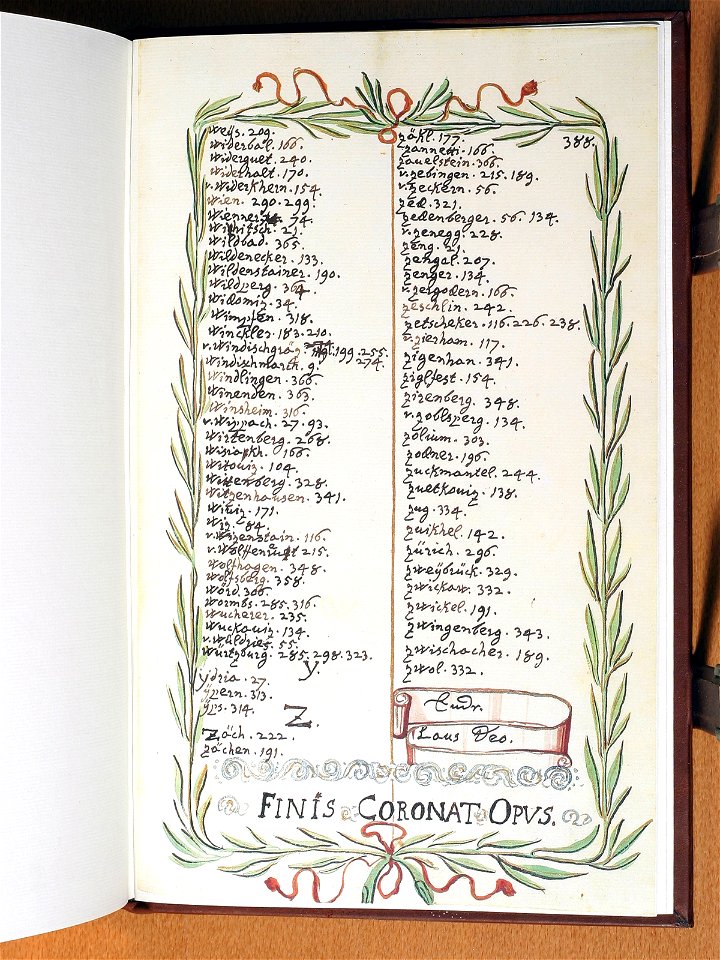 weÿs. 209.
widerbal. 166.
widerquet. 240.
widerhalt. 170.
v. widerkhern. 154.
wien. 290. 299.
wienner. 74.
21.
wildbad. 365.
wildenecker. 133.
wildenstainer. 190.
wildperg. 364.
widomiz. 34.
wimpfen. 318.
winckler. 183. 210.
v. windischgräz. 199. 255.
274.
windischmarch. 9.
windlingen. 366.
winenden. 363.
winsheim. 316.
v. wippach. 27. 93.
wirtenberg. 268.
wisiapkh. 166.
witouiz. 104.
wittenberg. 328.
witzenhausen. 341.
wiuiz. 171.
wiz. 84.
v. wizenstain. 116.
v. wolffen 215.
wolfhagen. 348.
wolfsberg. 358.
wörd. 306.
wormbs. 285. 316.
wucherer. 235.
wuckouiz. 134.
v. wüldries. 55.
würtzburg. 285. 298. 323.
Y.
ydria. 27.
ÿpern. 313.
ÿps. 314.
Z.
Zäch. 222.
zächen. 191.
388.
zäkl. 177.
zannetti. 166.
zauelstein. 366.
v. zebingen. 215. 189.
v. zeckern. 56.
zed. 321.
zedenberger. 56. 134.
v. zenegg. 228.
zeng. 21.
zengal. 207.
zenger. 134.
v. zergodern. 166.
zeschlin. 242.
zetscheker. 116. 226. 238.
v. zierham. 117.
zigenhan. 341.
ziglfest. 154.
zirenberg. 348.
v. zoblsperg. 134.
zolium. 303.
zodner. 196.
zuckmantel. 244.
zuetkouiz. 138.
zug. 334.
zuikhel. 142.
zürich. 296.
zweÿbrück. 329.
zwickaw. 332.
zwickel. 191.
zwingenberg. 343.
zwischacher. 189.
zwol. 332.
Endr.
Laus Deo.
FINIS CORONAT OPVS.